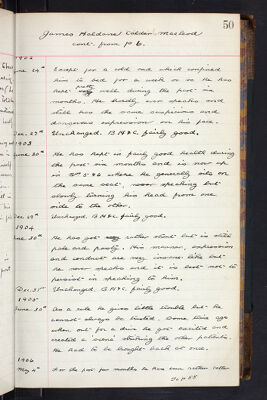 50
James Haldane Calder Macleod
cont. from p 6.
1902
June 24th Except for a cold and which confined
him to bed for a week or so he has
kept pretty well during the past six
months. He hardly ever speaks and
still has the same suspicious and
dangerous expression on his face.
Dec. 27th Unchanged. B.H & C. fairly good.
1903
June 30th He has kept in fairly good health during
the past six months and is now up
in where he generally sits on
the same seat, never speaking but
slowly turning his head from one
side to the other.
Dec. 29th Unchanged B.H & C. fairly good.
1904
June 30th He has got rather stout but is still
pale and pasty. His manner, expression
and conduct are very insane like but
he never speaks and it is best not to
persist in speaking to him.
Dec. 31st Unchanged. B.H & C. fairly good.
1905
June 30th As a rule he gives little trouble but he
cannot always be trusted. Some time ago
when out for a drive he got excited and
created a scene striking the other patients.
He had to be brought back at once.
1906
May 4th For the past few months he has been rather